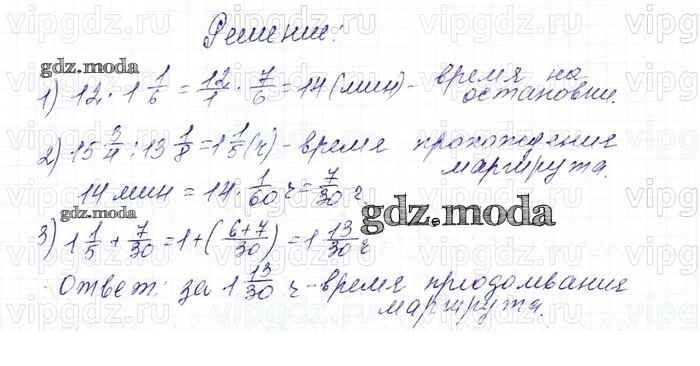 Решение:
gdz.moda
1) 12 · 1 1/6 = 12/1 · 7/6 = 14 (мин) - время на
остановки.
2) 15 3/4 : 13 1/8 = 1 1/5 (ч) - время прохождение
маршрута.
14 мин = 14 · 1/60 ч = 7/30 ч
gdz.moda
3) 1 1/5 + 7/30 = 1 + (6+7/30) = 1 13/30 ч
Ответ: за 1 13/30 ч - время приодомвание
маршрута.